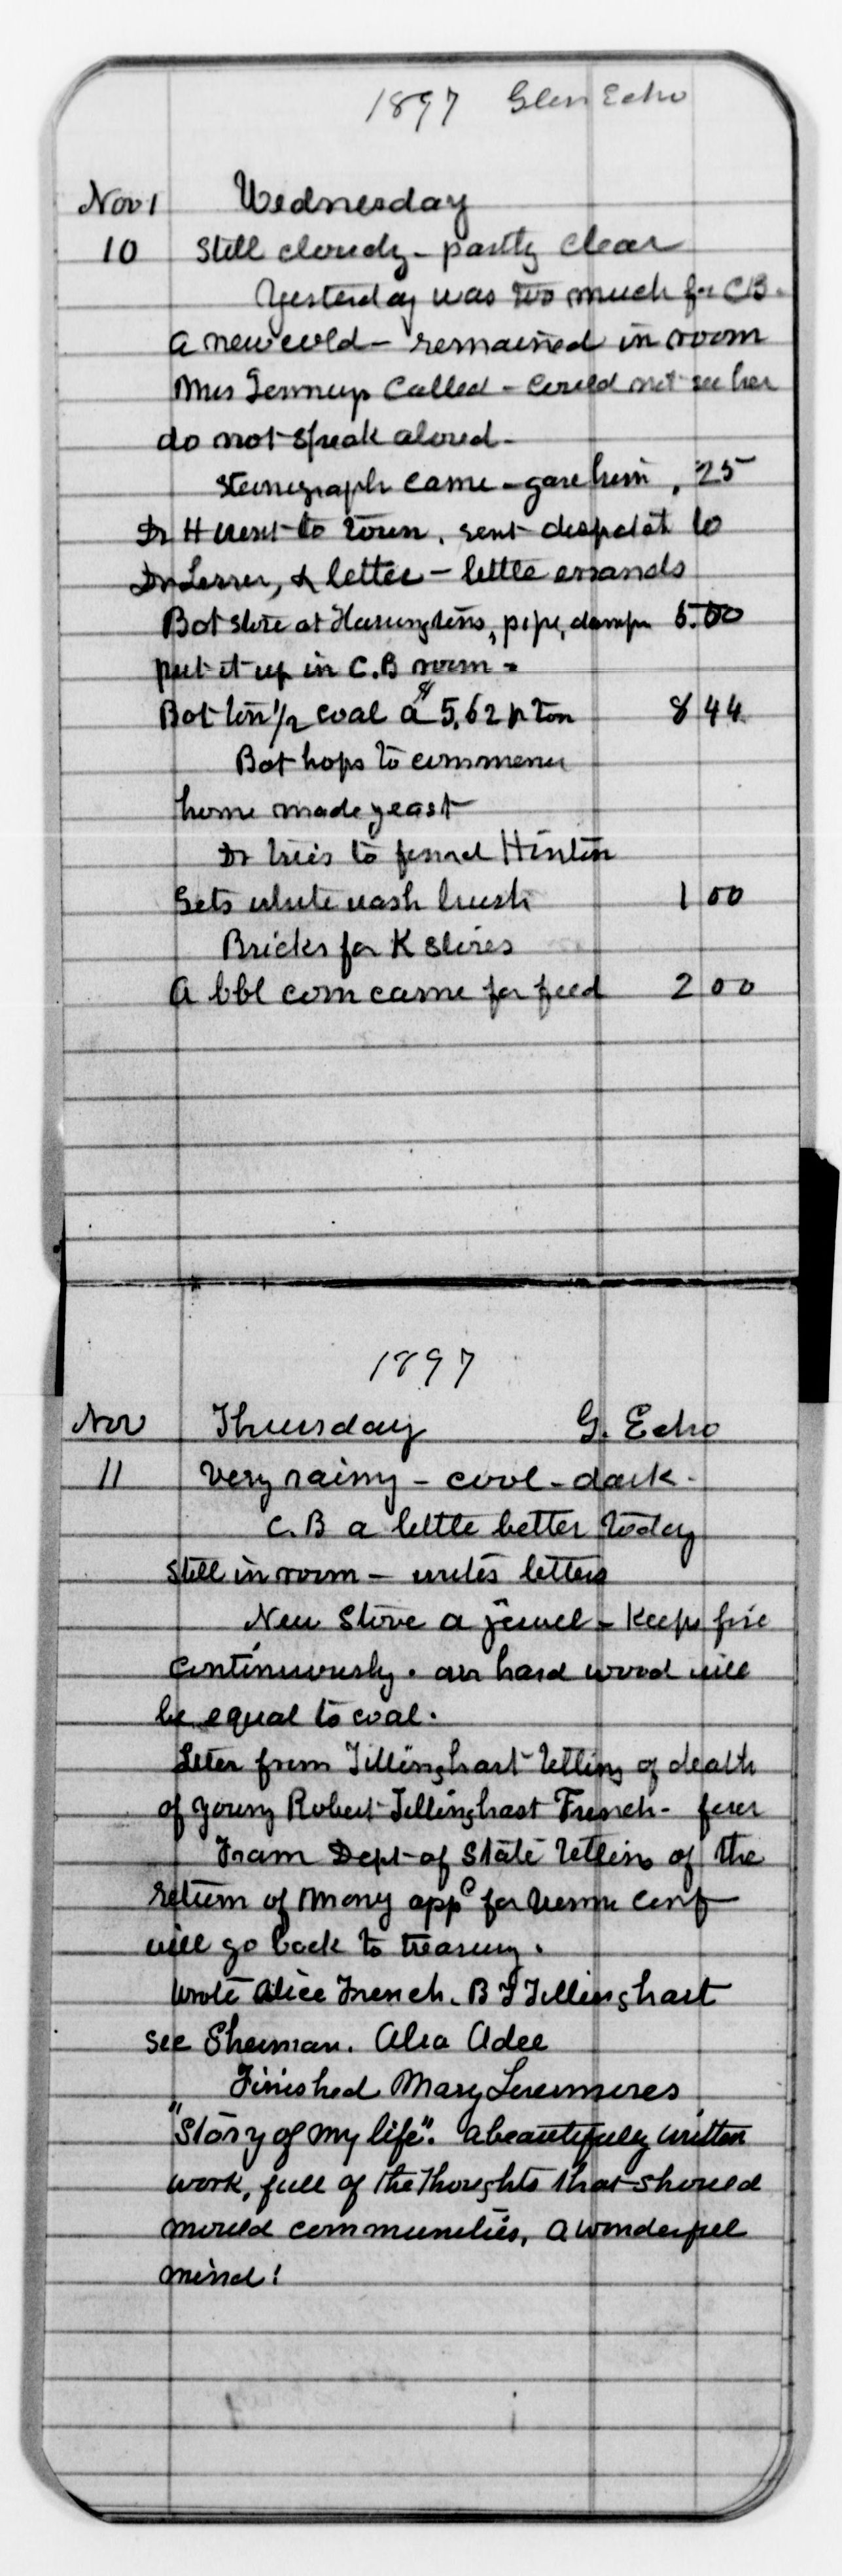 1897 Glen Echo
Nov 1 Wednesday
10 Still cloudy - partly clear
Yesterday was too much for CB.
a new cold - remained in room
Mrs called - could not see her
do not speak aloud -
Stenograph came - gave him .25
Dr H went to town. sent dispatch to
Dr Lesser, & letter - little errands
Bot stove at , pipe, damper 5.00
put it up in C.B room -
Bot ton 1/2 coal a $5.62 p ton 8 44
Bot hops to commence
home made yeast
Dr tries to find Hinton
Gets white wash brush 1 00
Bricks for K stoves
a bbl corn came for feed 2 00
1897
Nov Thursday G. Echo
11 Very rainy - cool - dark -
C.B a little better today
still in room - writes letters
New Stove a jewel - Keeps fire
continuously. our hard wood will
be equal to coal.
Leter from Tillinghast telling of death
of young Robert Tillinghast French - fever
From Dept of State telling of the
return of Mony app for conf
will go back to treasury.
Wrote Alice French. B F Tillinghast
see Sherman. Also Adee
Finished Mary Livermores
"Story of my life". a beautifully written
work, full of the thoughts that should
mould communities, a wonderful
mind!